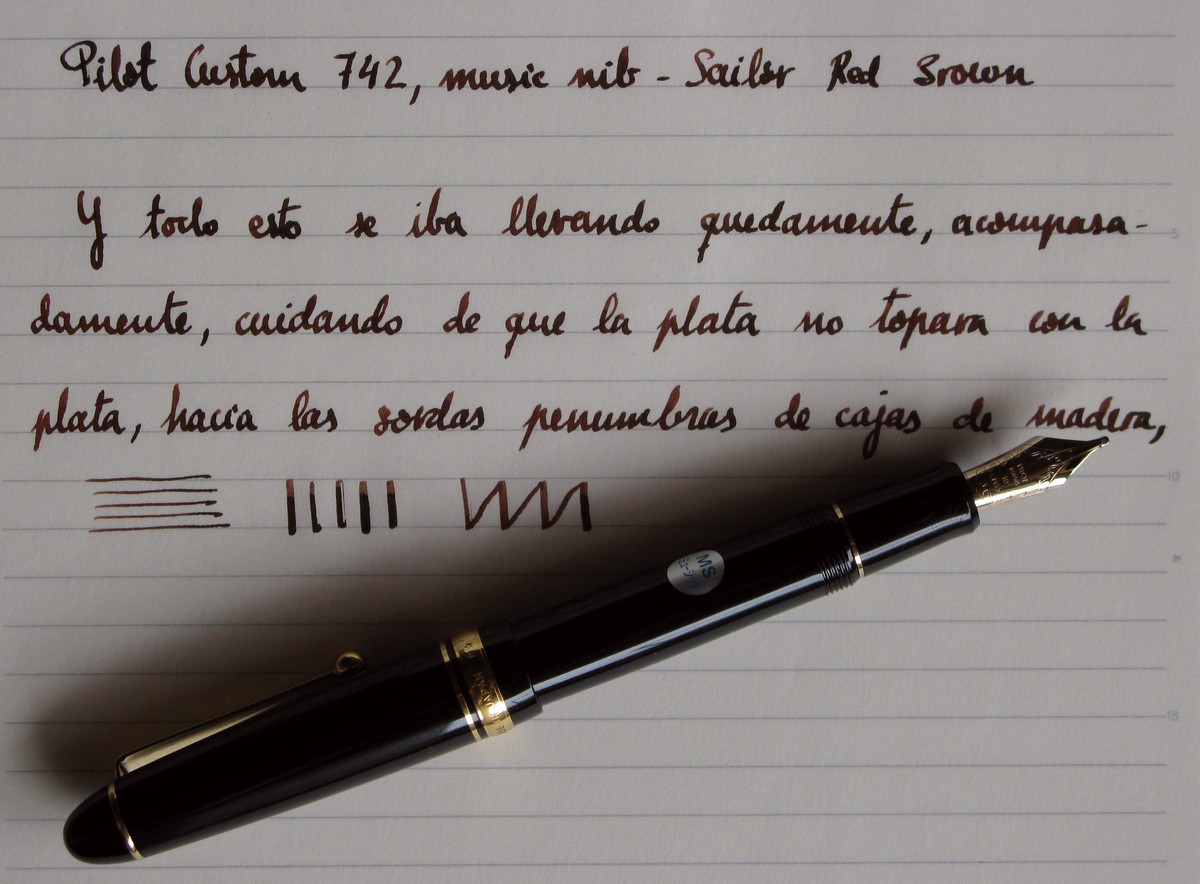 Pilot Custom 742, music nib - Sailor Red Brown
Y todo esto se iba llevando quedamente, acompasa-
damente, cuidando de que la plata no topara con la
plata, hacia las sordas penumbras de cajas de madera,
5
10
15
MS
JAPAN